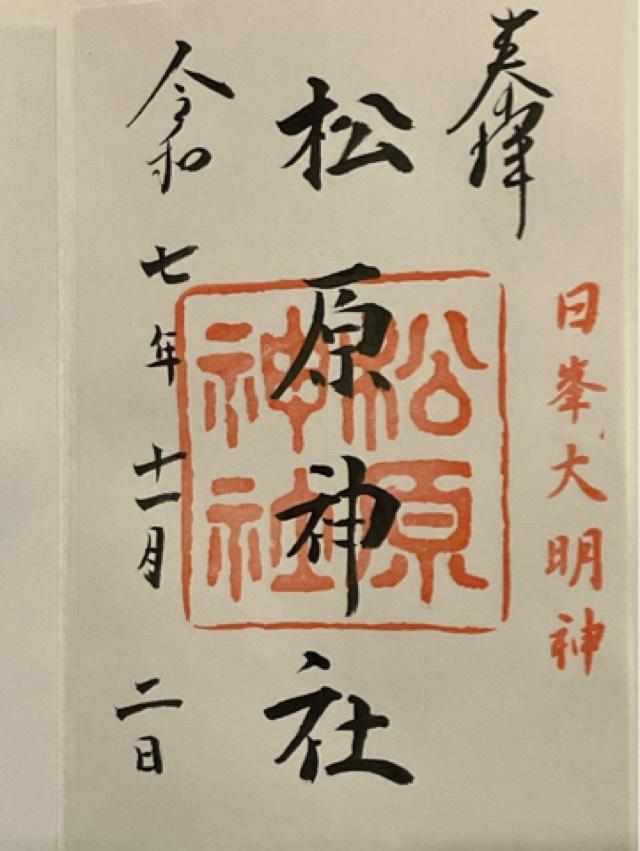 日峯大明神
奉拝
松原神社
松原
神社
令和七年十一月二日